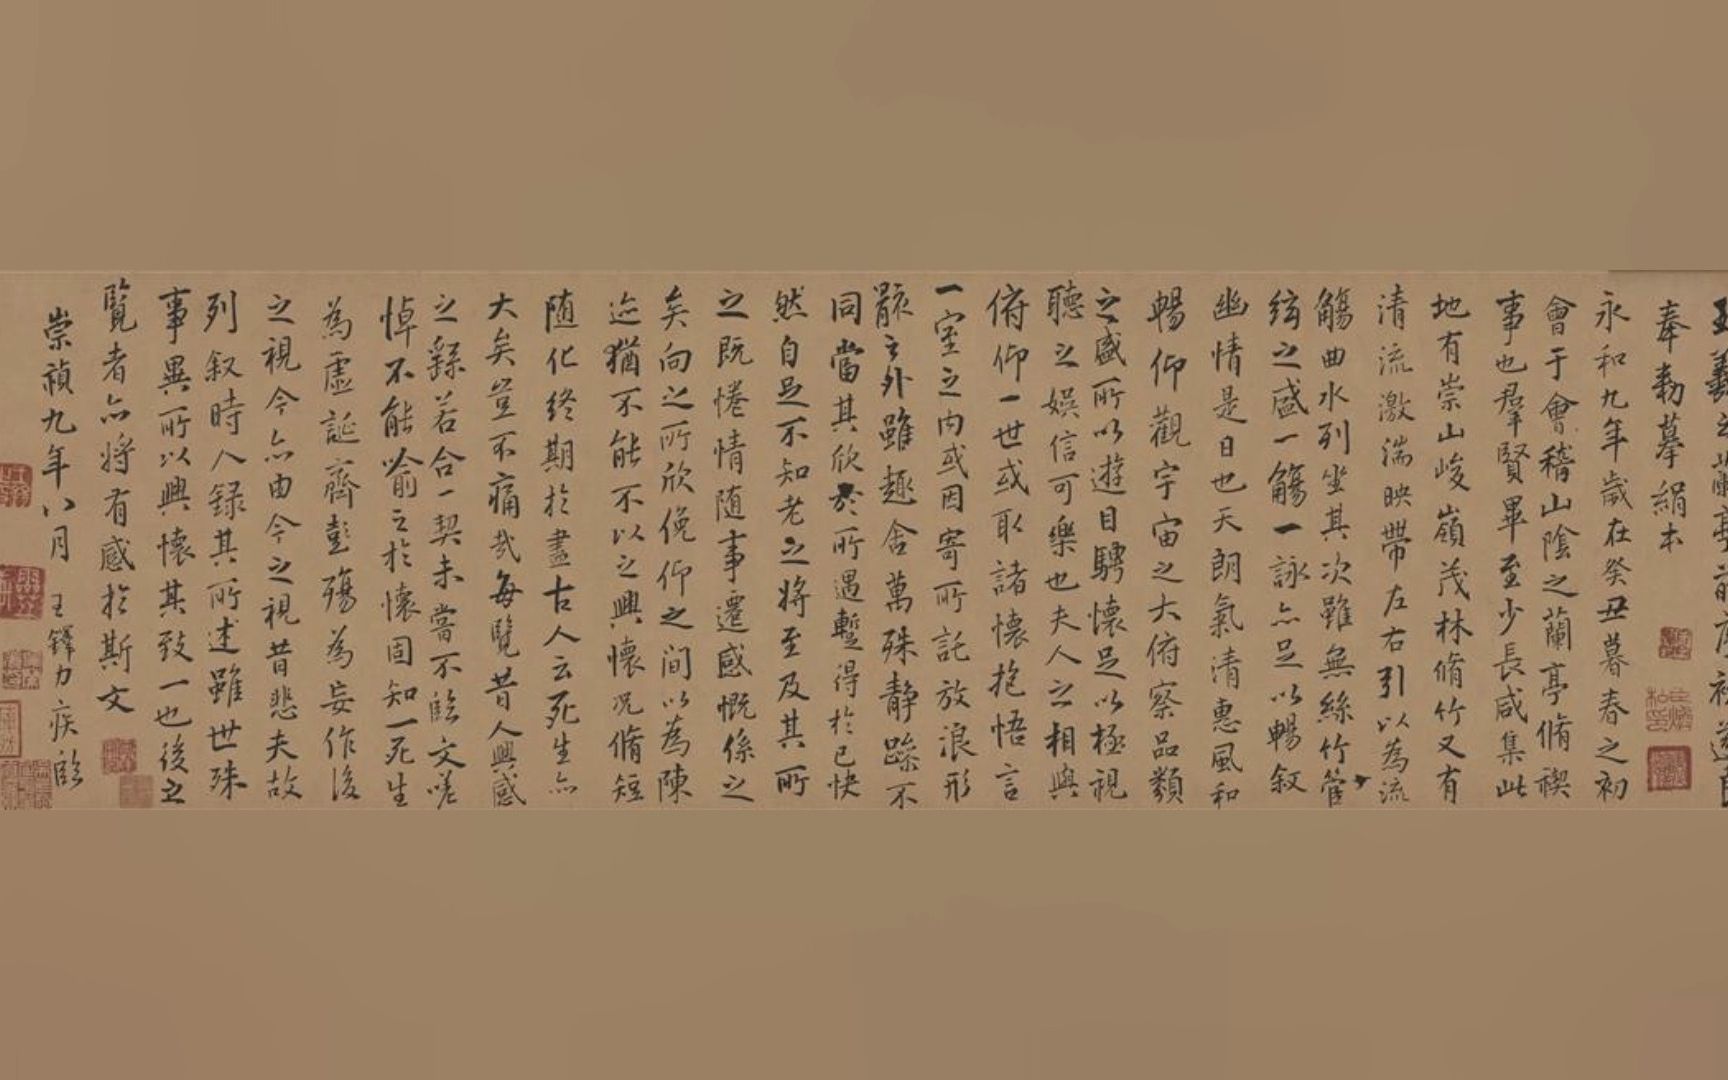 王羲之蘭亭
奉勅摹絹本
永和九年歲在癸丑暮春之初
會于會稽山陰之蘭亭脩禊
事也羣賢畢至少長咸集此
地有崇山峻嶺茂林脩竹又有
清流激湍映帶左右引以為流
觴曲水列坐其次雖無絲竹管
絃之盛一觴一詠亦足以暢敘
幽情是日也天朗氣清惠風和
暢仰觀宇宙之大俯察品類
之盛所以遊目騁懷足以極視
聽之娛信可樂也夫人之相與
俯仰一世或取諸懷抱悟言
一室之内或因寄所託放浪形
骸之外雖趣舍萬殊静躁不
同當其欣於所遇蹔得於己快
然自足不知老之将至及其所
之既惓情随事遷感慨係之
矣向之所欣俛仰之間以為陳
迹猶不能不以之興懷况脩短
随化終期於盡古人云死生亦
大矣豈不痛哉每覽昔人興感
之繇若合一契未嘗不臨文嗟
悼不能喻之於懷固知一死生
為虛誕齊彭殤為妄作後
之視今亦由今之視昔悲夫故
列叙時人録其所述雖世殊
事異所以興懷其致一也後之
覽者亦将有感於斯文
崇禎九年八月 王鐸力疾臨